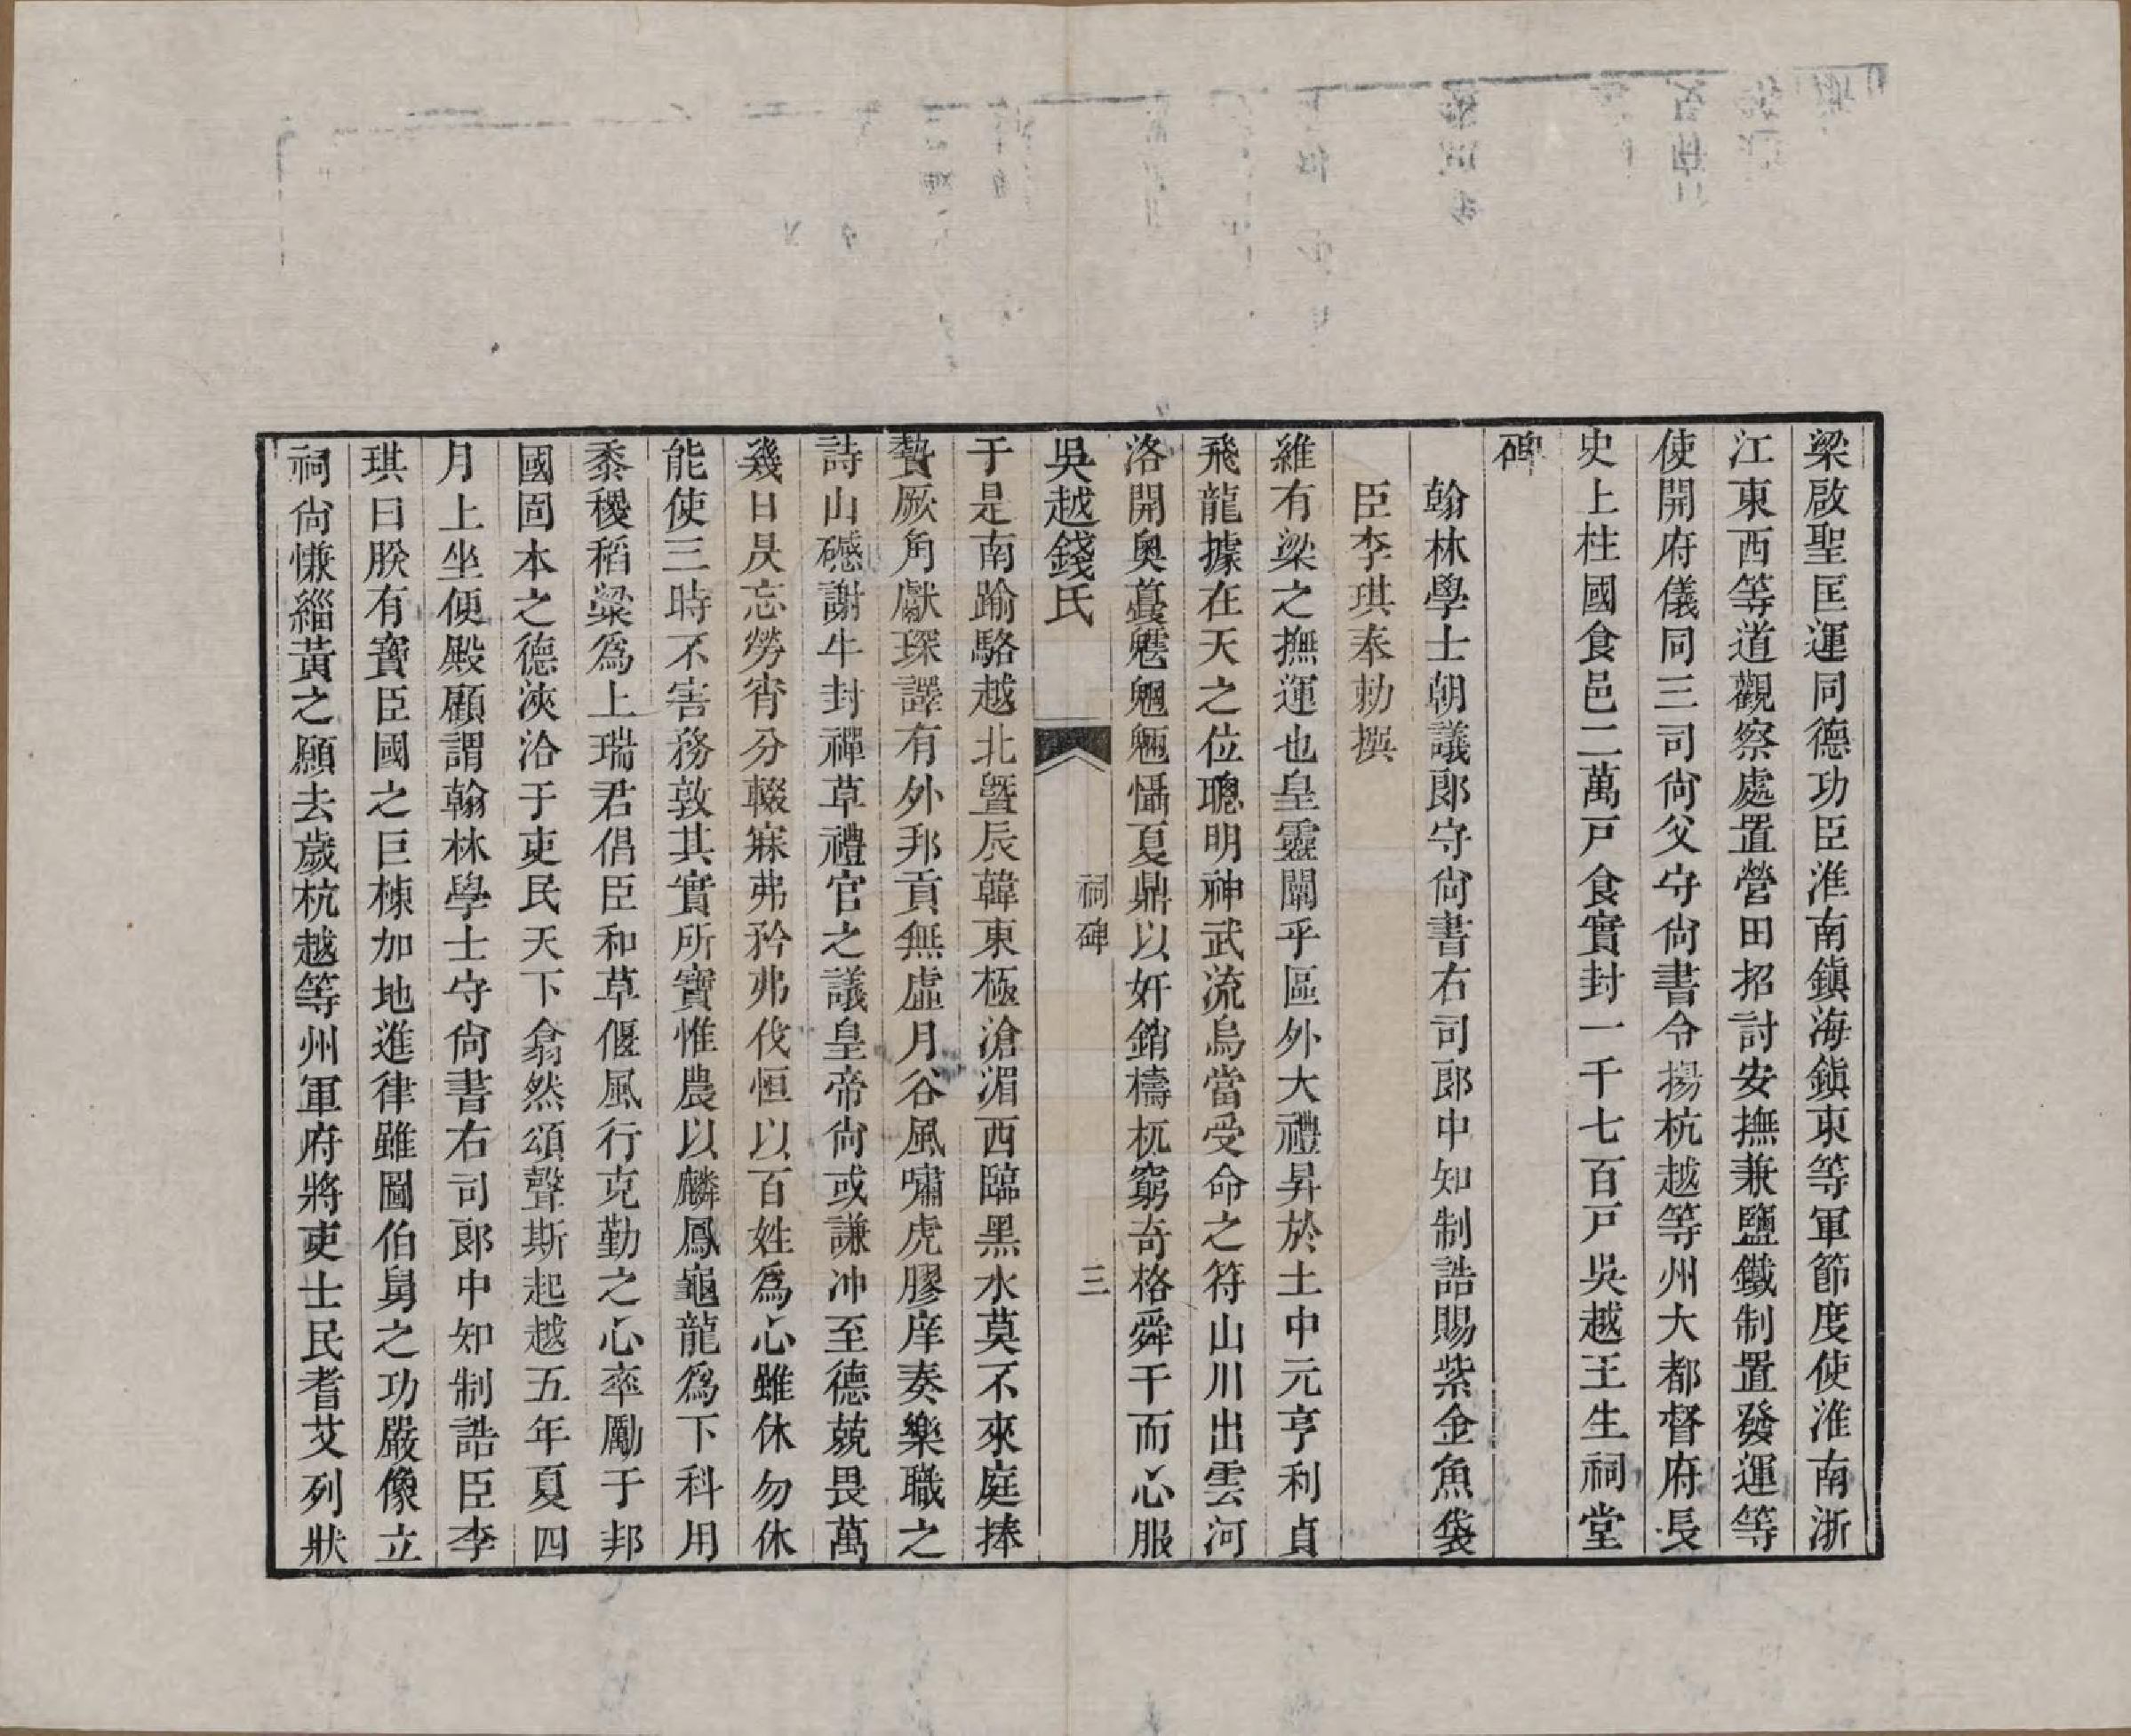 梁啟聖匡運同德功臣淮南鎭海鎭東等軍節度使淮南浙
江東西等道觀察處置營田招討安撫兼鹽鐵制置發運等
使開府儀同三司尙父守尙書令揚杭越等州大都督府長
史上柱國食邑二萬戸食實封一千七百戸吳越王生祠堂
碑
翰林學士朝議郞守尙書右司郞中知制誥賜紫金魚袋
臣李琪奉勅撰
維有梁之撫運也皇靈闡乎區外大禮昇於土中元亨利貞
飛龍據在天之位聰明神武流烏當受命之符山川出雲河
洛開奧蠆魑魍魎懾夏鼎以奸銷檮杌窮奇格舜干而心服
吳越錢氏 祠碑 三
于是南踰駱越北曁辰韓東極滄湄西臨黑水莫不來庭捧
贄厥角獻琛譯有外邦貢無虛月谷風嘯虎膠庠奏樂職之
詩山礠謝牛封禪草禮官之議皇帝尙或謙冲至德兢畏萬
幾日昃忘勞宵分輟寐弗矜弗伐恒以百姓爲心雖休勿休
能使三時不害務敦其實所寶惟農以麟鳳龜龍爲下科用
黍稷稻粱爲上瑞君倡臣和草偃風行克勤之心率勵于邦
國固本之德浹洽于吏民天下翕然頌聲斯起越五年夏四
月上坐便殿顧謂翰林學士守尙書右司郞中知制誥臣李
琪曰朕有寶臣國之巨棟加地進律雖圖伯舅之功嚴像立
祠尙慊緇黃之願去歲杭越等州軍府將吏士民耆艾列狀